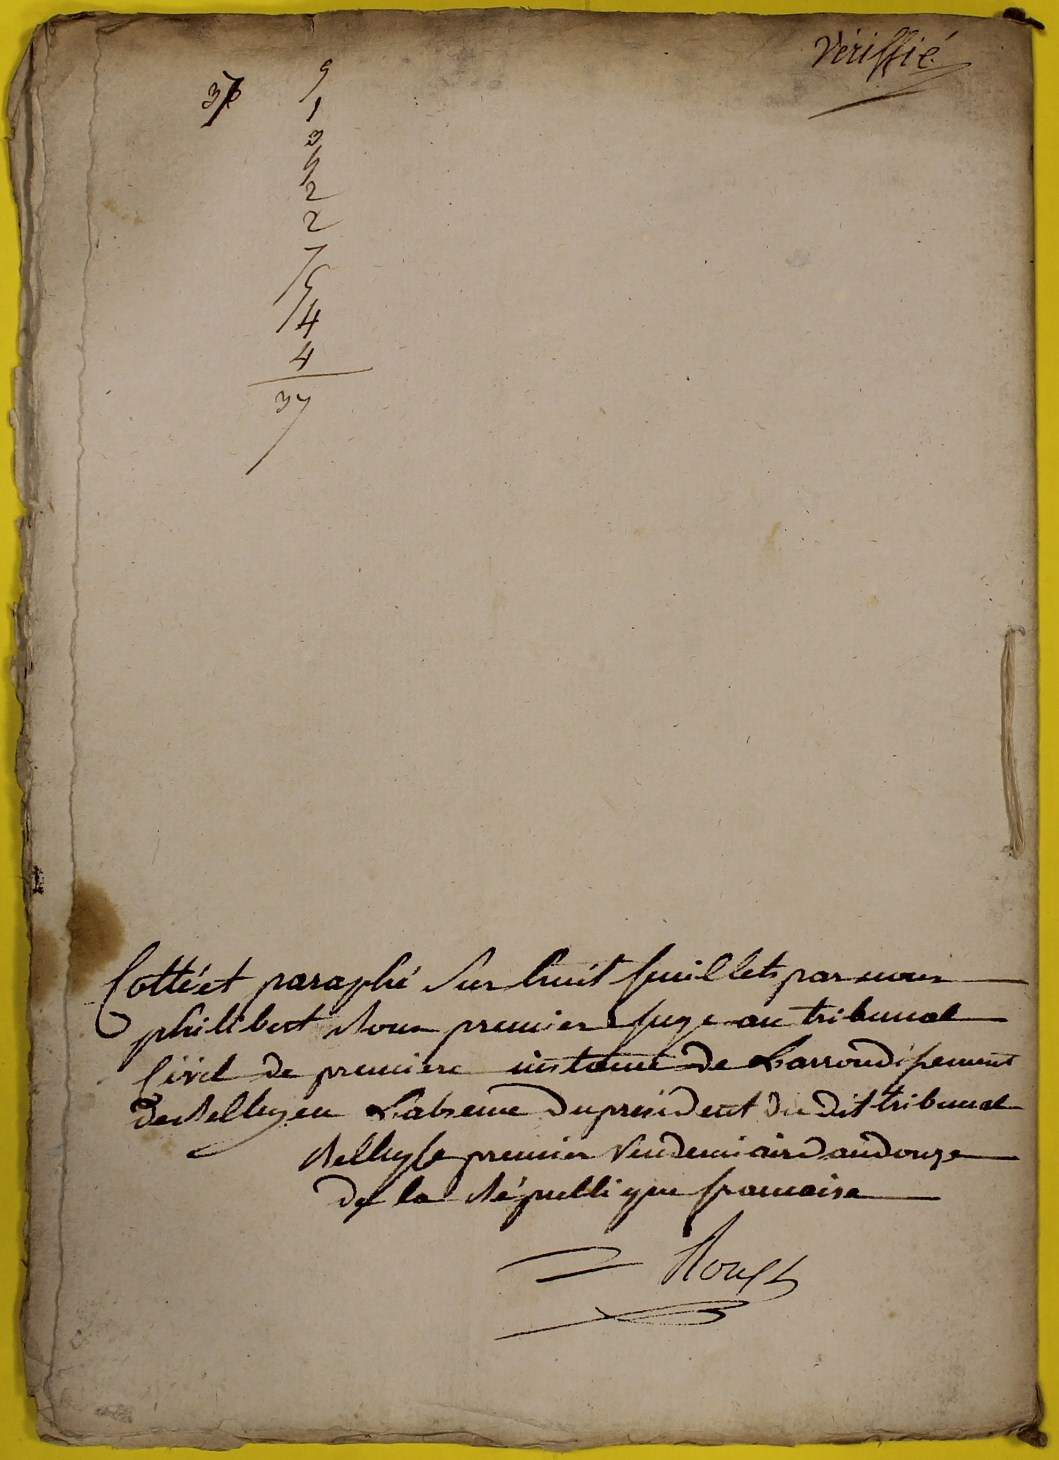 Vériffié
37
9
1
3
2
2
7
4
4
37
Cotté et paraphé Sur huit feuillets par nous
philibert Roux premier Juge au tribunal
Civil de premiere instance de Larrondissement
de Belley en Labsence du president du dit tribunal
Belley le premier Vendemiaire an douze
de la République francaise
Roux